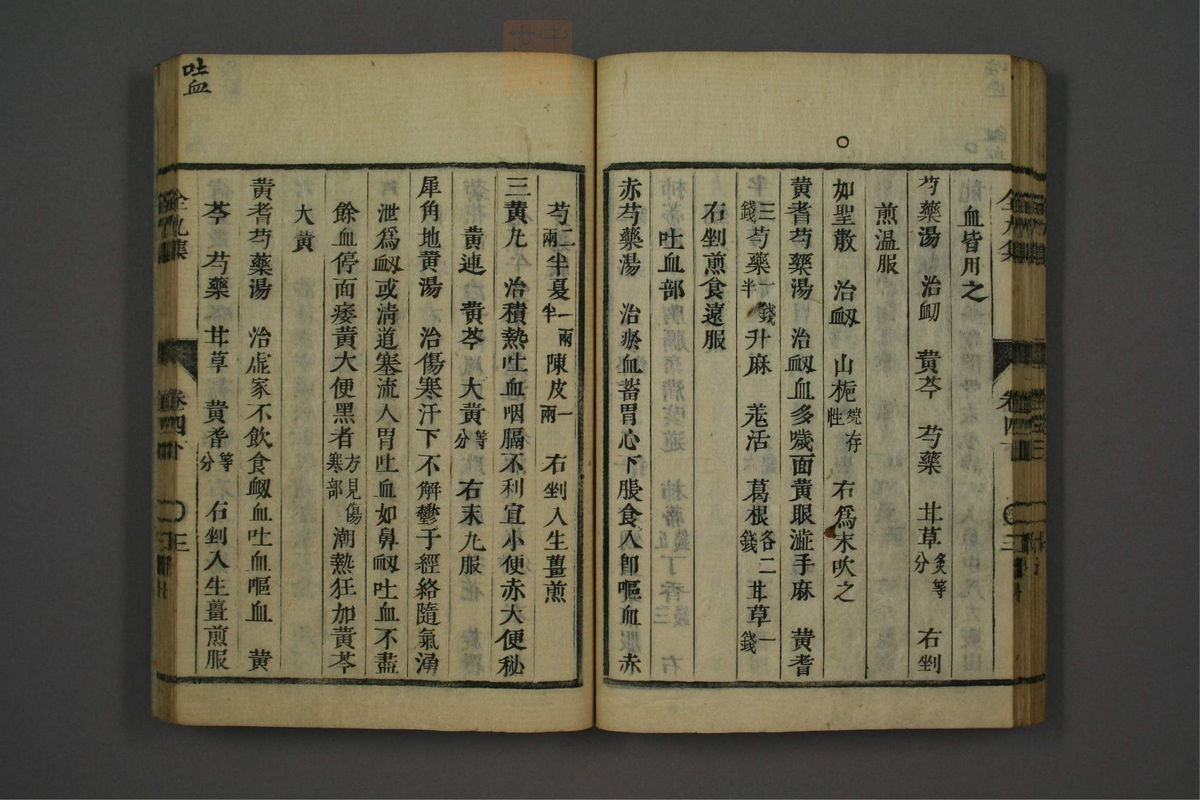 血皆用之
芍藥湯 治衂 黄芩 芍藥 甘草炙等分 右剉
煎温服
如聖散 治衂 山梔燒存性 右為末吹之
黄耆芍藥湯 治衂血多歲面黄眼澁手麻 黄耆
三錢芍藥一錢半升麻 羗活 葛根各二錢甘草一錢
右剉煎食遠服
吐血部
赤芍藥湯 治瘀血蓄胃心下脹食入卽嘔血 赤
芍二兩半夏一兩半陳皮一兩 右剉入生薑煎
三黄丸 治積熱吐血咽膈不利宜小便赤大便秘
黄連 黄芩 大黄等分 右末丸服
犀角地黄湯 治傷寒汗下不解鬱于經絡隨氣湧
泄爲衂或淸道塞流入胃吐血如鼻衂吐血不盡
餘血停面痿黄大便黑者方見傷寒部潮熱狂加黄芩
大黄
黄耆芍藥湯 治虛家不飲食衂血吐血嘔血 黄
芩 芍藥 甘草 黄耆等分 右剉入生薑煎服
全九集 卷四
吐血